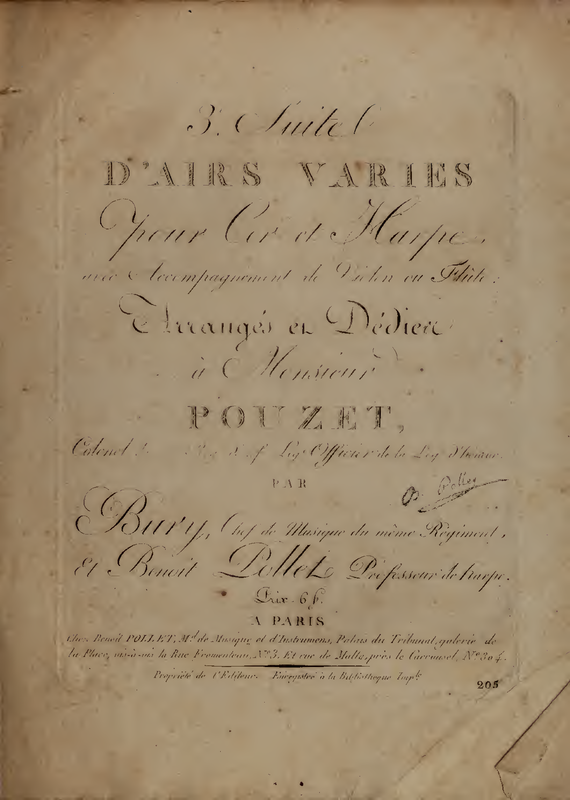 3.e Suite
D'AIRS VARIES
pour Cor et Harpe,
avec Accompagnement de Violon ou Flûte.
Arrangés et Dédiés
à Monsieur
POUZET,
Colonel Officier de la Leg. d'honneur.
PAR
B. Pollet
Bury, Chef de Musique du même Régiment,
Et Benoit Pollet Professeur de harpe.
Prix 6 f.
A PARIS
Chez Benoit POLLET, M.d de Musique et d'Instrumens, Palais du Tribunat, galerie de
la Place, vis-à-vis la Rue Fromenteau, N.o 3. Et rue de Malte, près le Carrousel, N.o 304.
Propriété de l'Editeur. Enregistré à la Bibliotheque Imp.le
205